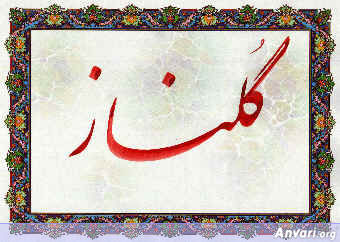 گلناز
Anvari.org